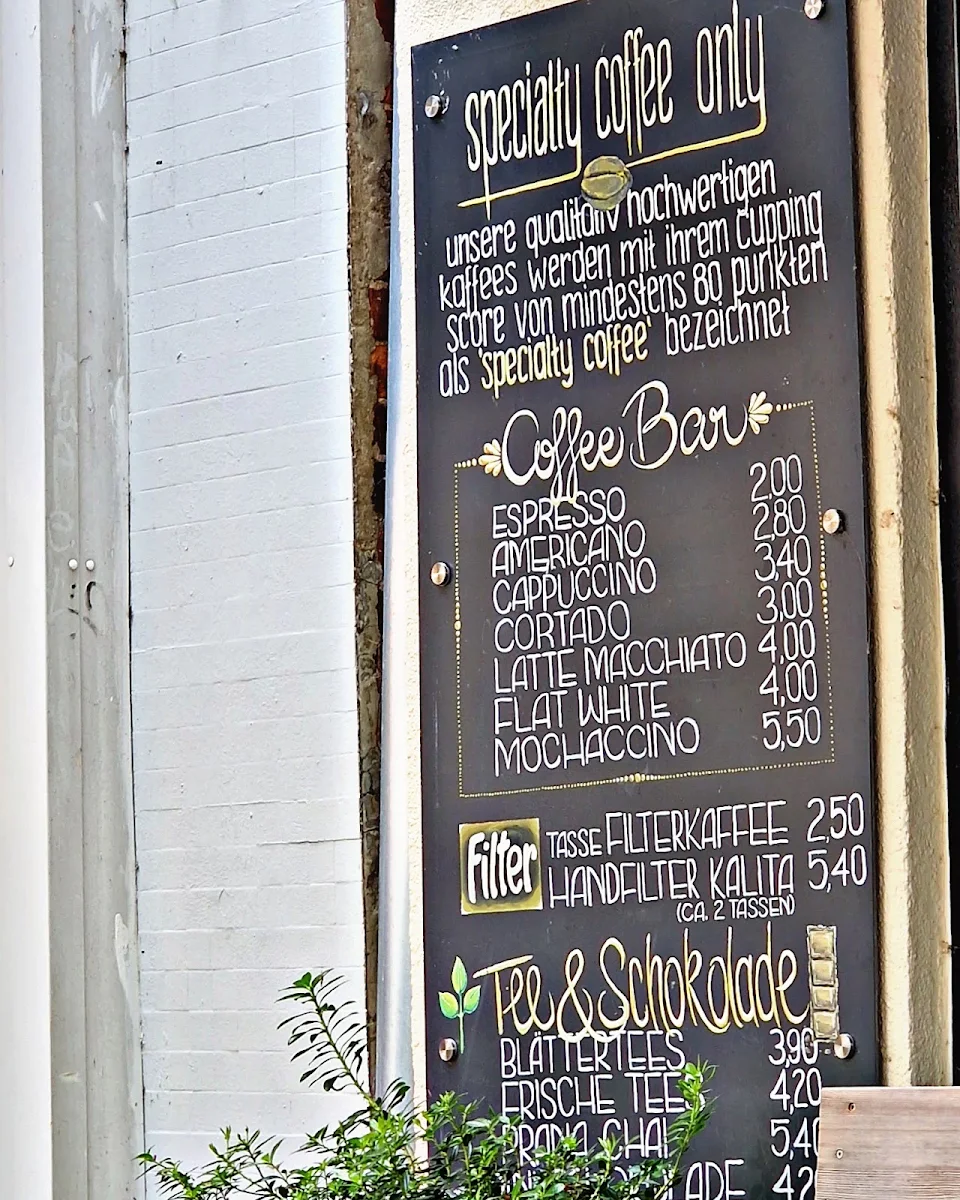 specialty coffee only
unsere qualitativ hochwertigen
kaffees werden mit ihrem Cupping
score von mindestens 80 punkten
als 'specialty coffee' bezeichnet
Coffee Bar
ESPRESSO 2.00
AMERICANO 2,80
CAPPUCCINO 3,40
CORTADO 3,00
LATTE MACCHIATO 4,00
FLAT WHITE 4,00
MOCHACCINO 5,50
Filter
TASSE FILTERKAFFEE 2,50
HANDFILTER KALITA 5,40
(CA. 2 TASSEN)
Tee & Schokolade
BLÄTTERTEES 3,90
FRISCHE TEES 4,20
PRANA CHAI 5,40